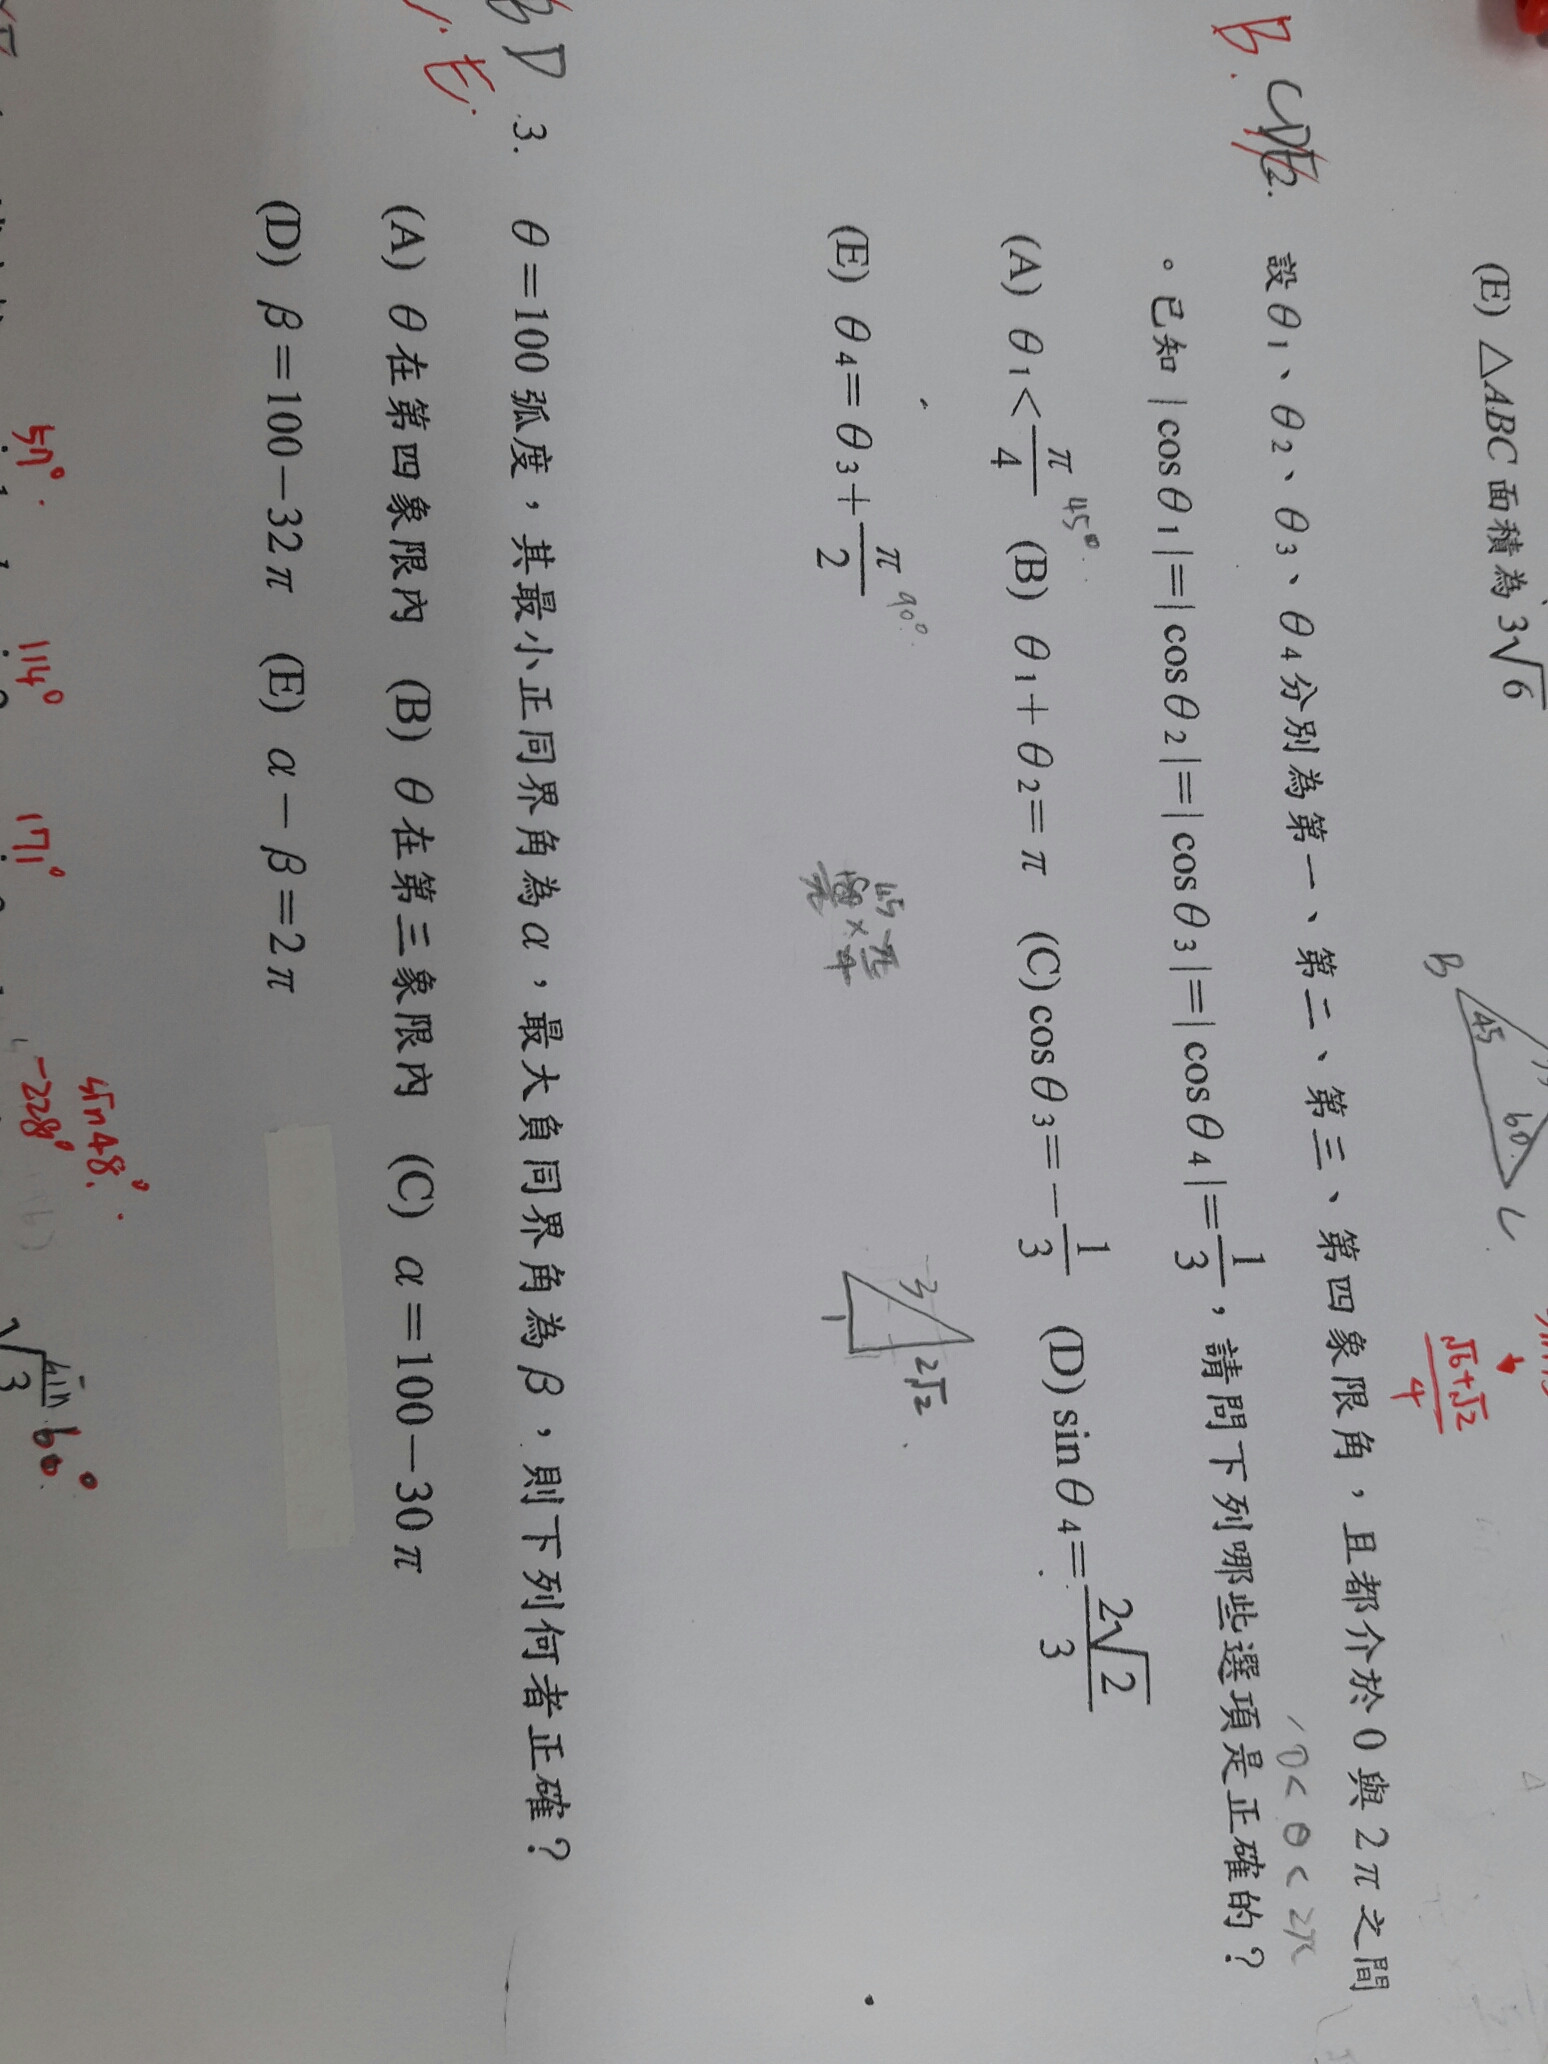 (E) △ABC 面積為 3√6
B 45 60° C
√6+√2
4
B. CDE 2. 設 θ1、θ2、θ3、θ4 分別為第一、第二、第三、第四象限角，且都介於 0 與 2π 之間
0<θ<2π
。已知 |cosθ1|=|cosθ2|=|cosθ3|=|cosθ4|=1/3，請問下列哪些選項是正確的？
(A) θ1<π/4 45° (B) θ1+θ2=π (C) cosθ3=-1/3 (D) sinθ4=2√2/3
(E) θ4=θ3+π/2 90°
3 2√2
1
BD 3. θ=100 弧度，其最小正同界角為 α，最大負同界角為 β，則下列何者正確？
E.
(A) θ 在第四象限內 (B) θ 在第三象限內 (C) α=100-30π
(D) β=100-32π (E) α-β=2π
sin48°
57° 114° 171° -228°
sin60°
√3